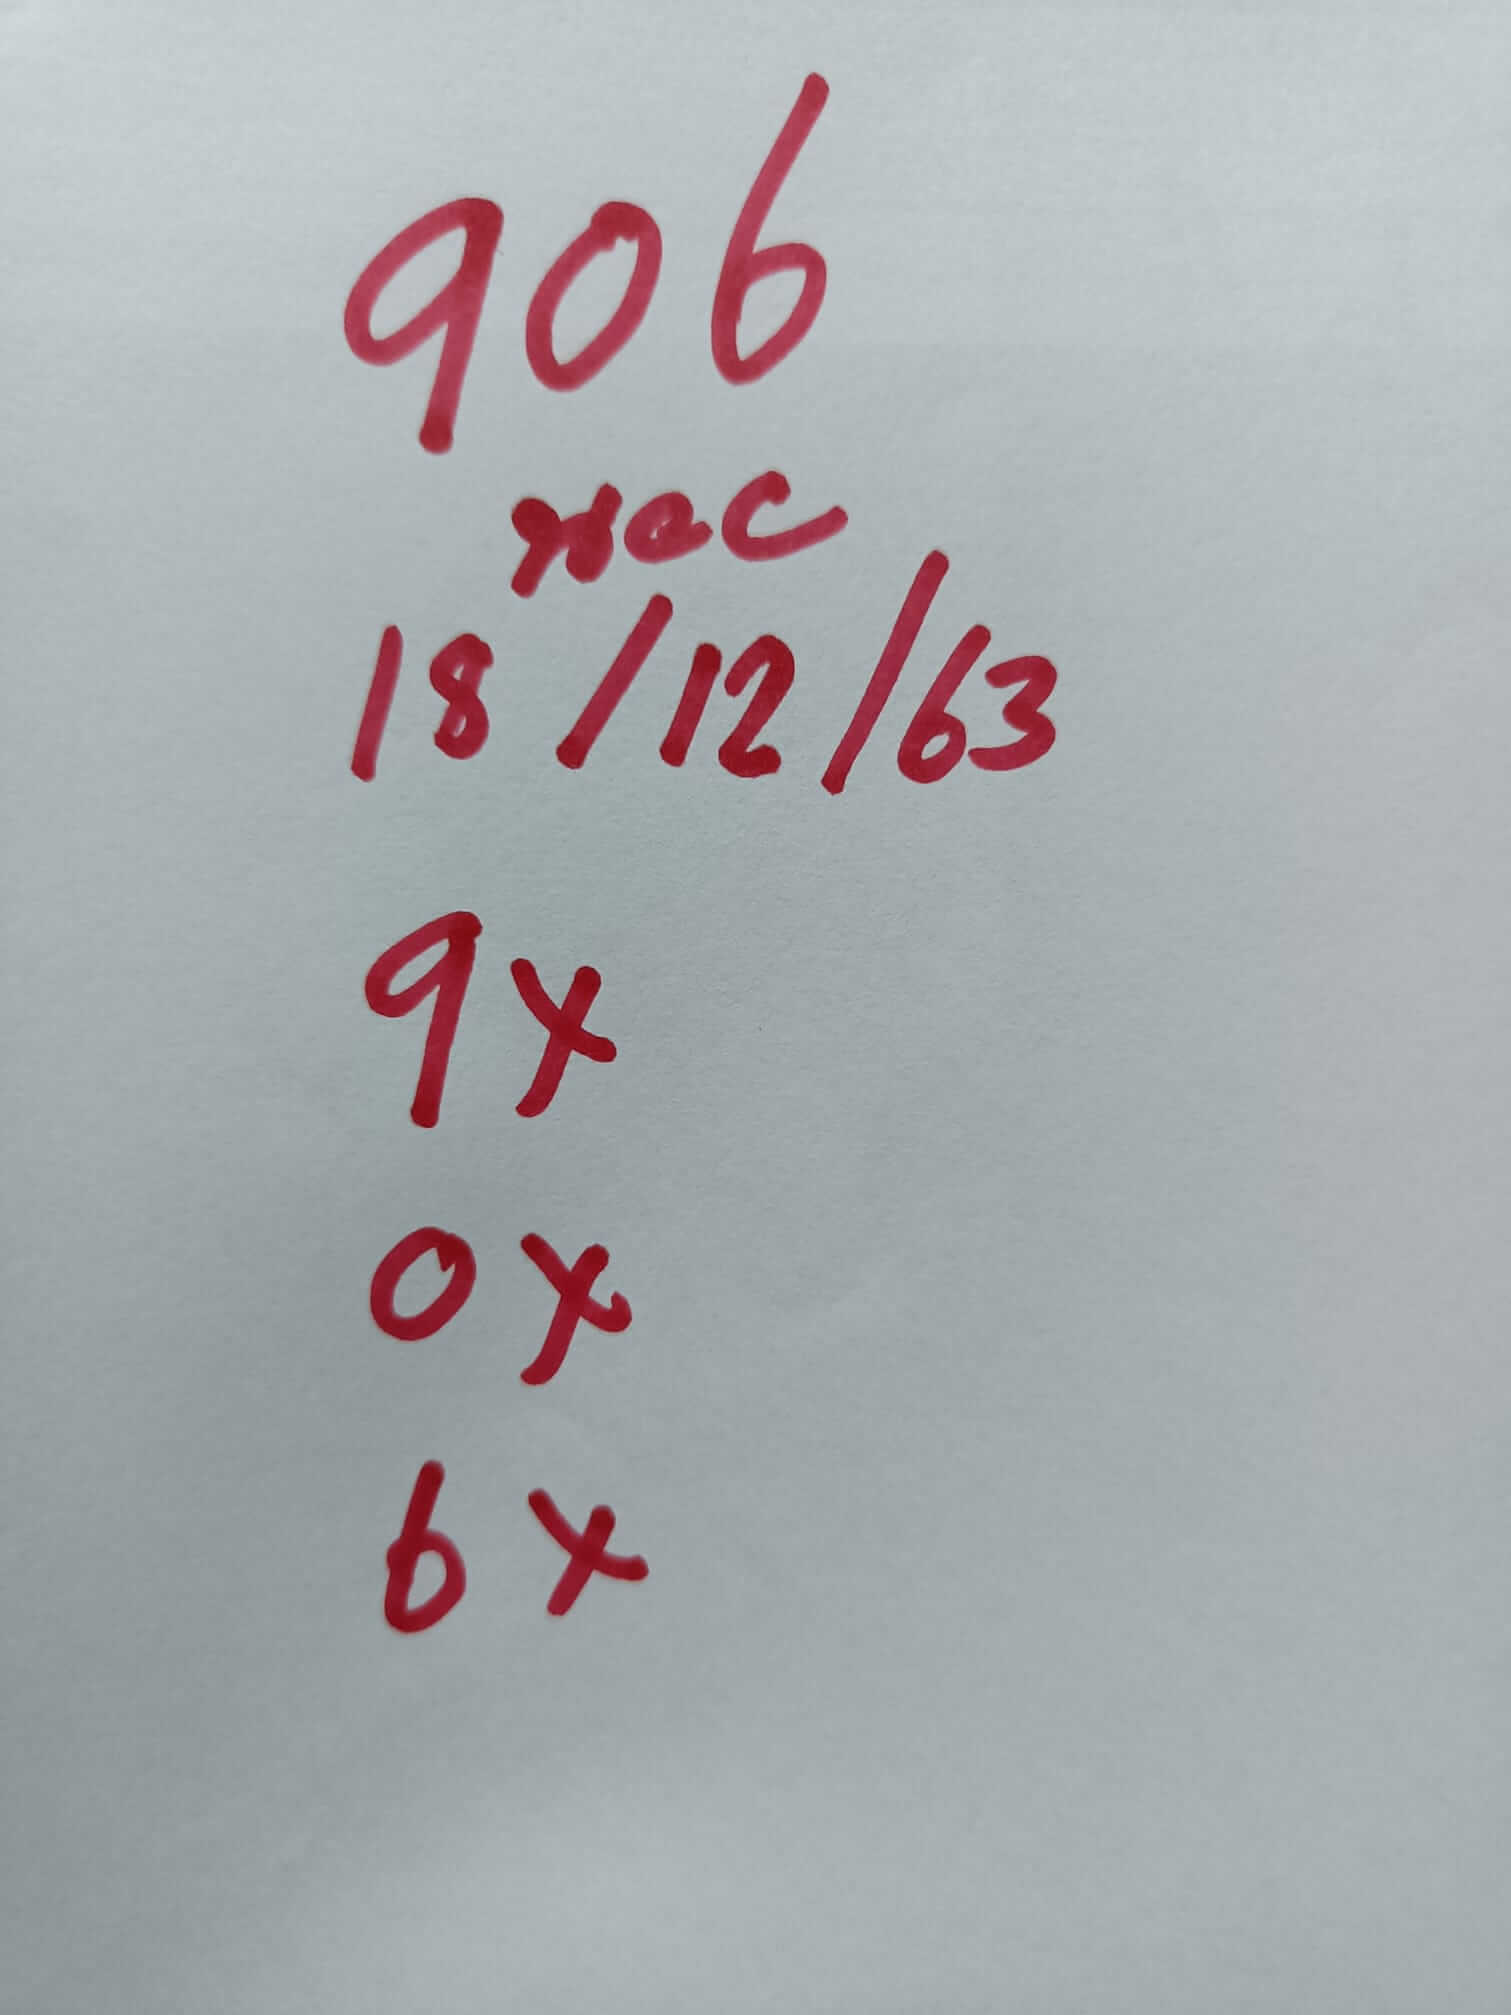 906
18/12/63
9x
0x
6x